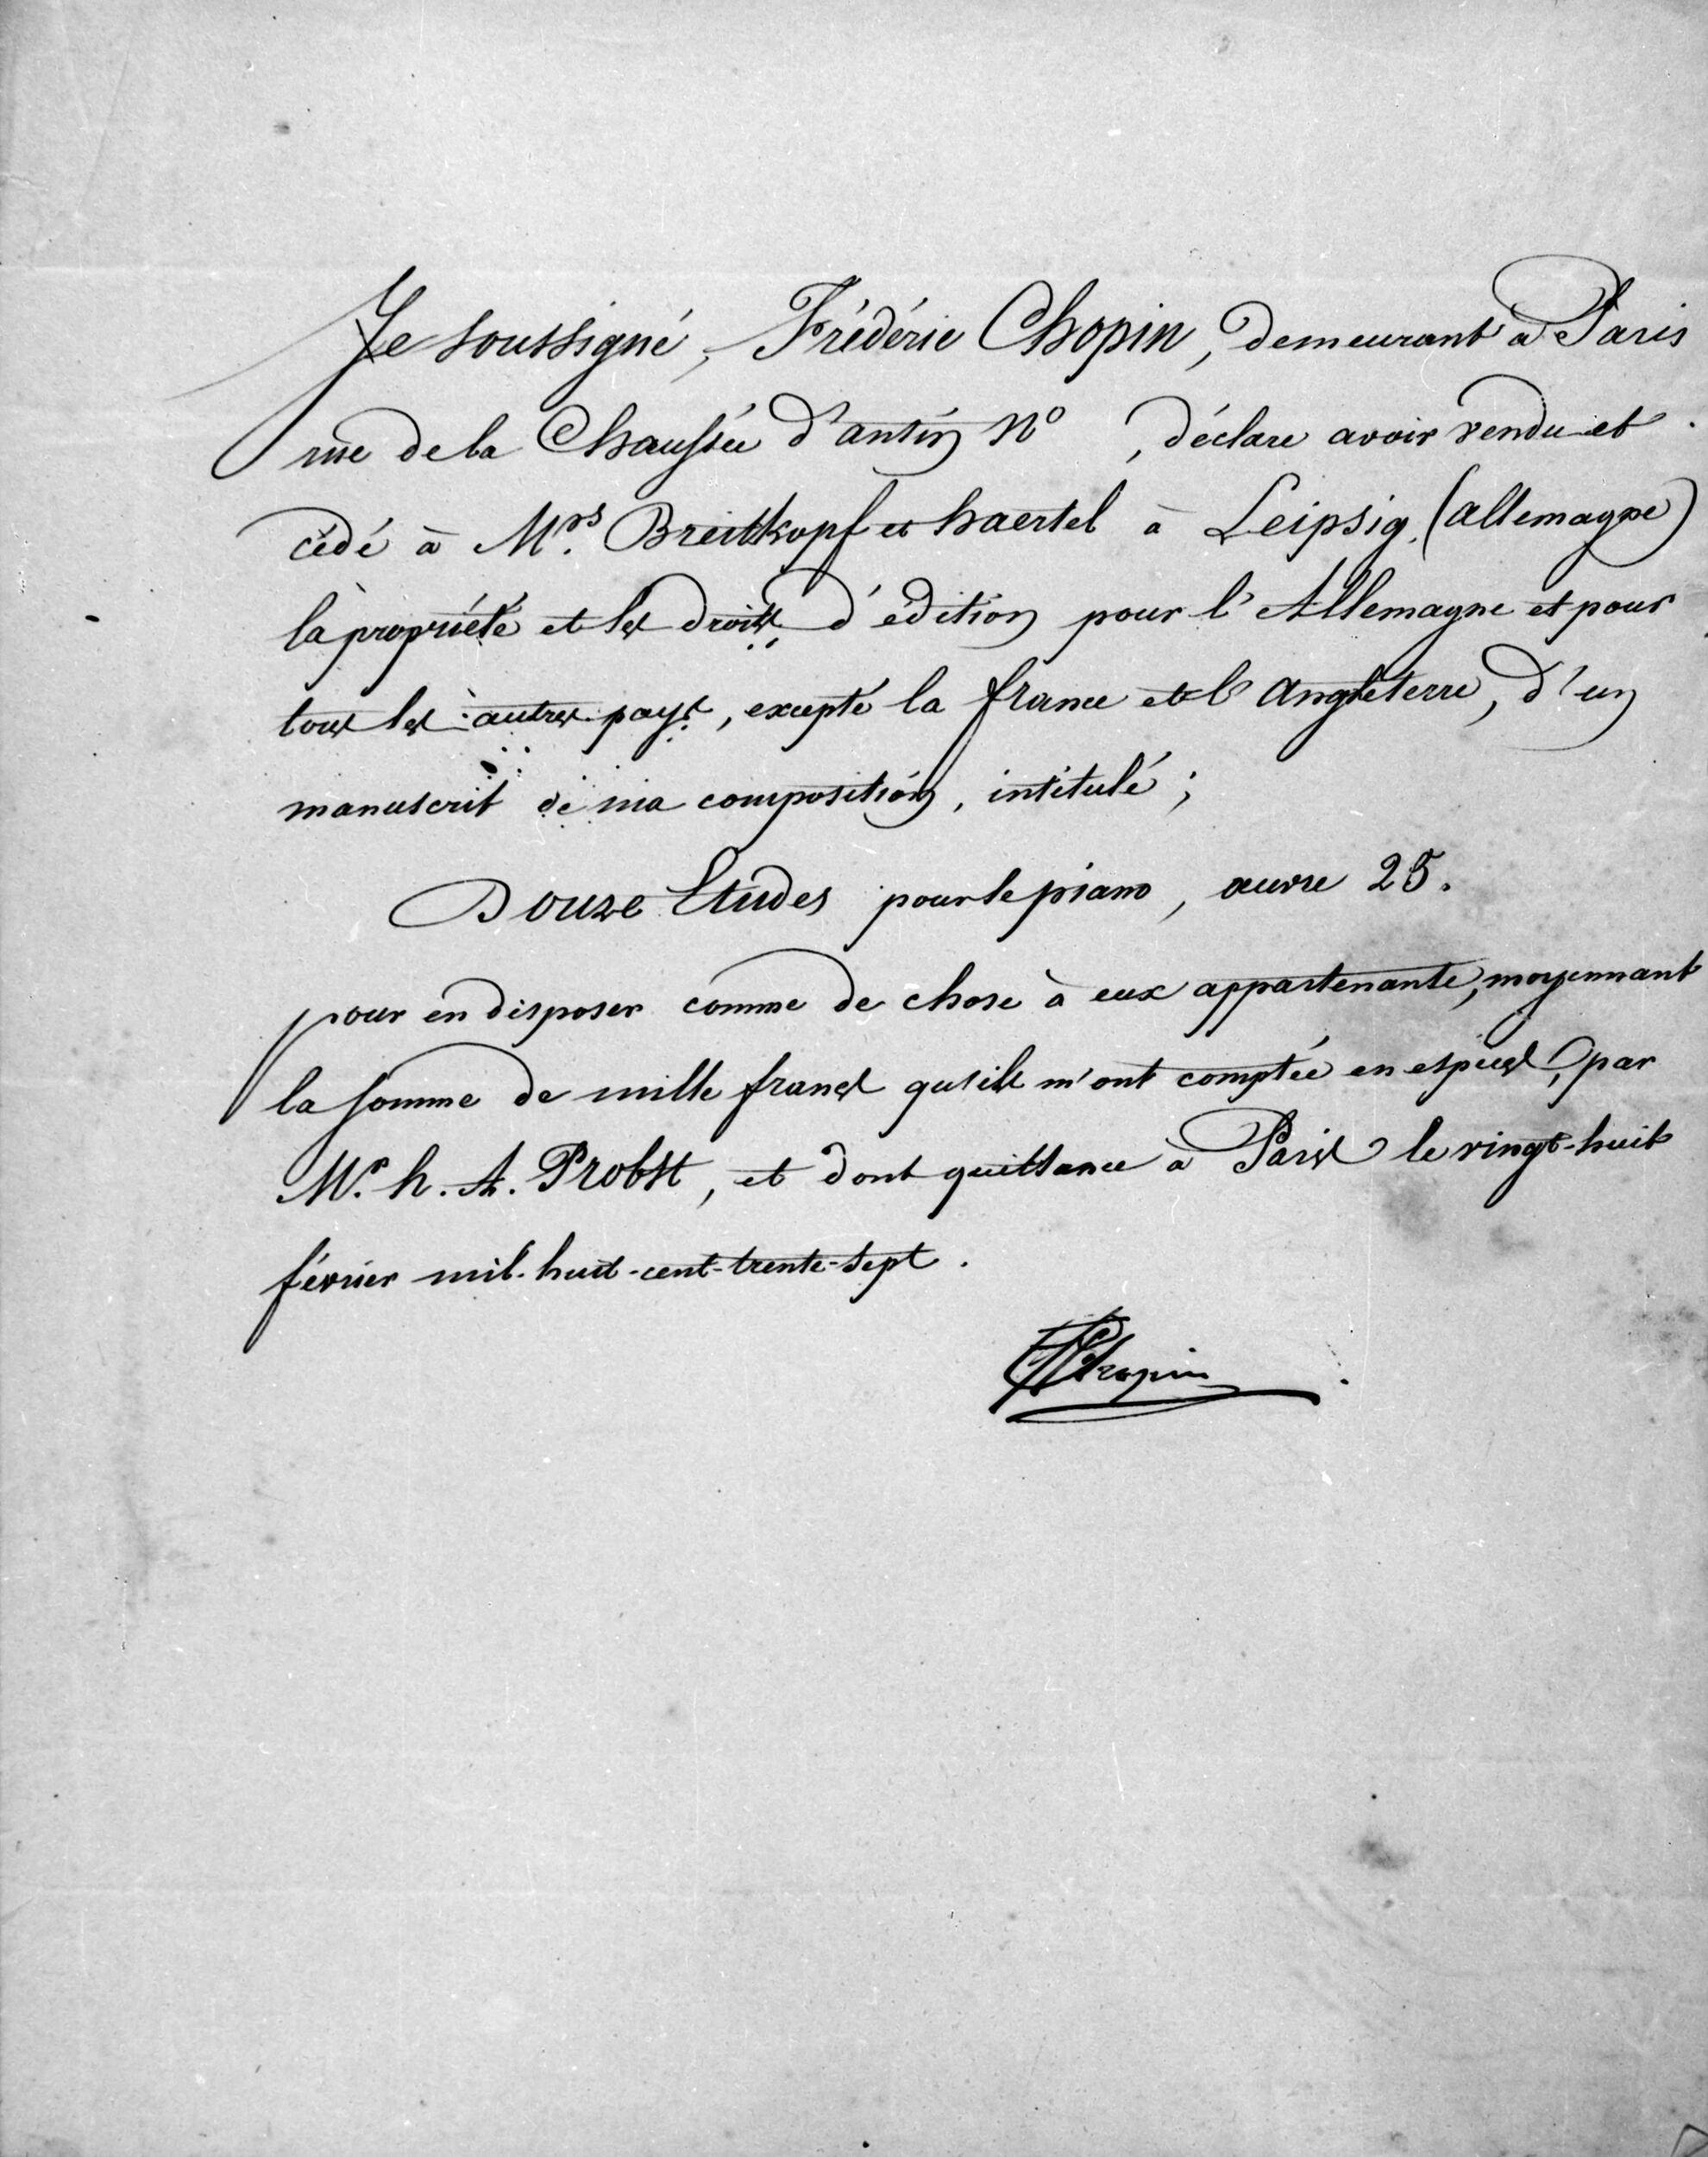 Je soussigné, Frédéric Chopin, demeurant à Paris
rue de la Chaussée d'antin Nº , déclare avoir vendu et
cédé à Mrs. Breitkopf et haertel à Leipsig. (allemagne)
la propriété et les droits d'édition pour l'Allemagne et pour
tous les autres pays, excepté la france et l'angleterre, d'un
manuscrit de ma composition, intitulé ;
Douze Etudes pour le piano, œuvre 25.
pour en disposer comme de chose à eux appartenante, moyennant
la somme de mille francs qu'ils m'ont comptée en espèces, par
Mr. h. A. Probst, et dont quittance à Paris le vingt-huit
février mil-huit-cent-trente-sept.
FChopin